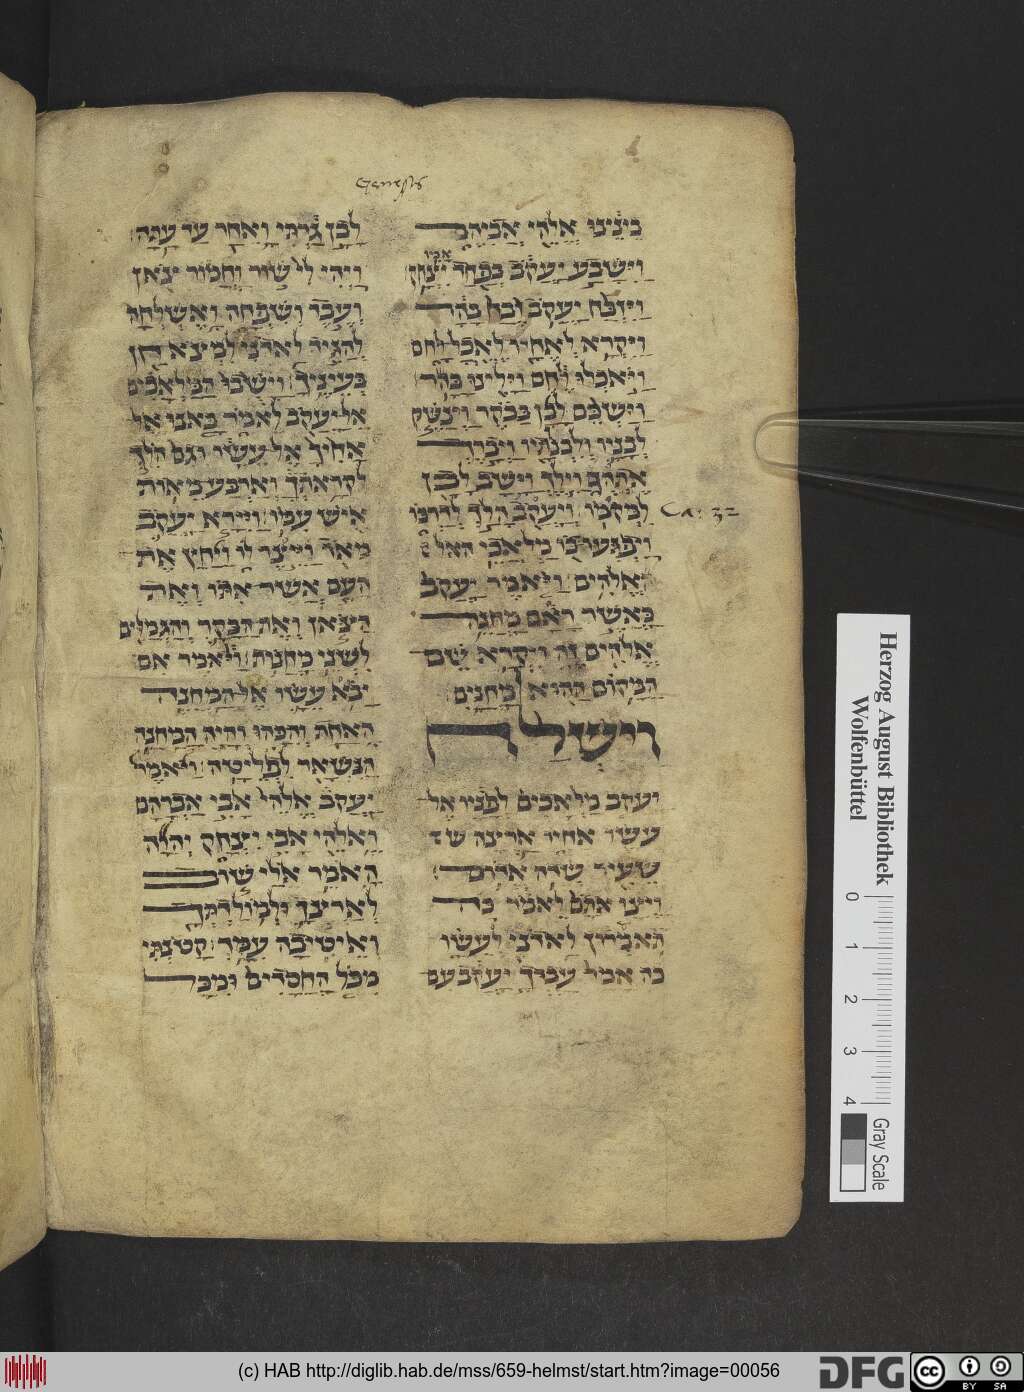 Genesis
בֵינֵינוּ אֱלֹהֵי אֲבִיהֶם
אביו
וַיִּשָּׁבַע יַעֲקֹב בְּפַחַד יִצְחָק
וַיִּזְבַּח יַעֲקֹב זֶבַח בָּהָר
וַיִּקְרָא לְאֶחָיו לֶאֱכָל לָחֶם
וַיֹּאכְלוּ לֶחֶם וַיָּלִינוּ בָּהָר
וַיַּשְׁכֵּם לָבָן בַּבֹּקֶר וַיְנַשֵּׁק
לְבָנָיו וְלִבְנוֹתָיו וַיְבָרֶךְ
אֶתְהֶם וַיֵּלֶךְ וַיָּשָׁב לָבָן
לִמְקֹמוֹ וְיַעֲקֹב הָלַךְ לְדַרְכּוֹ
Ca. 32
וַיִּפְגְּעוּ בוֹ מַלְאֲכֵי האל
אֱלֹהִים וַיֹּאמֶר יַעֲקֹב
כַּאֲשֶׁר רָאָם מַחֲנֵה
אֱלֹהִים זֶה וַיִּקְרָא שֵׁם
הַמָּקוֹם הַהוּא מַחֲנָיִם
וישלח
יעקב מַלְאָכִים לְפָנָיו אֶל
עשו אָחִיו אַרְצָה ש
שֵׂעִיר שְׂדֵה אֱדוֹם
וַיְצַו אֹתָם לֵאמֹר כֹּה
תֹאמְרוּן לַאדֹנִי לְעֵשָׂו
כה אָמַר עַבְדְּךָ יַעֲקֹב עִם
לָבָן גַּרְתִּי וָאֵחַר עַד עָתָּה
וַיְהִי לִי שׁוֹר וַחֲמוֹר צֹאן
וְעֶבֶד וְשִׁפְחָה וָאֶשְׁלְחָה
לְהַגִּיד לַאדֹנִי לִמְצֹא חֵן
בְּעֵינֶיךָ וַיָּשֻׁבוּ הַמַּלְאָכִים
אֶל יַעֲקֹב לֵאמֹר בָּאנוּ אֶל
אָחִיךָ אֶל עֵשָׂו וְגַם הֹלֵךְ
לִקְרָאתְךָ וְאַרְבַּע מֵאוֹת
אִישׁ עִמּוֹ וַיִּירָא יַעֲקֹב
מְאֹד וַיֵּצֶר לוֹ וַיַּחַץ אֶת
הָעָם אֲשֶׁר אִתּוֹ וְאֶת
הַצֹּאן וְאֶת הַבָּקָר וְהַגְּמַלִּים
לִשְׁנֵי מַחֲנוֹת וַיֹּאמֶר אִם
יָבוֹא עֵשָׂו אֶל הַמַּחֲנֶה
הָאַחַת וְהִכָּהוּ וְהָיָה הַמַּחֲנֶה
הַנִּשְׁאָר לִפְלֵיטָה וַיֹּאמֶר
יַעֲקֹב אֱלֹהֵי אָבִי אַבְרָהָם
וֵאלֹהֵי אָבִי יִצְחָק יְהוָה
הָאֹמֵר אֵלַי שׁוּב
לְאַרְצְךָ וּלְמוֹלַדְתְּךָ
וְאֵיטִיבָה עִמָּךְ קָטֹנְתִּי
מִכֹּל הַחֲסָדִים וּמִכָּל
Herzog August Bibliothek
Wolfenbüttel
0 1 2 3 4
Gray Scale
(c) HAB http://diglib.hab.de/mss/659-helmst/start.htm?image=00056
DFG
cc BY SA